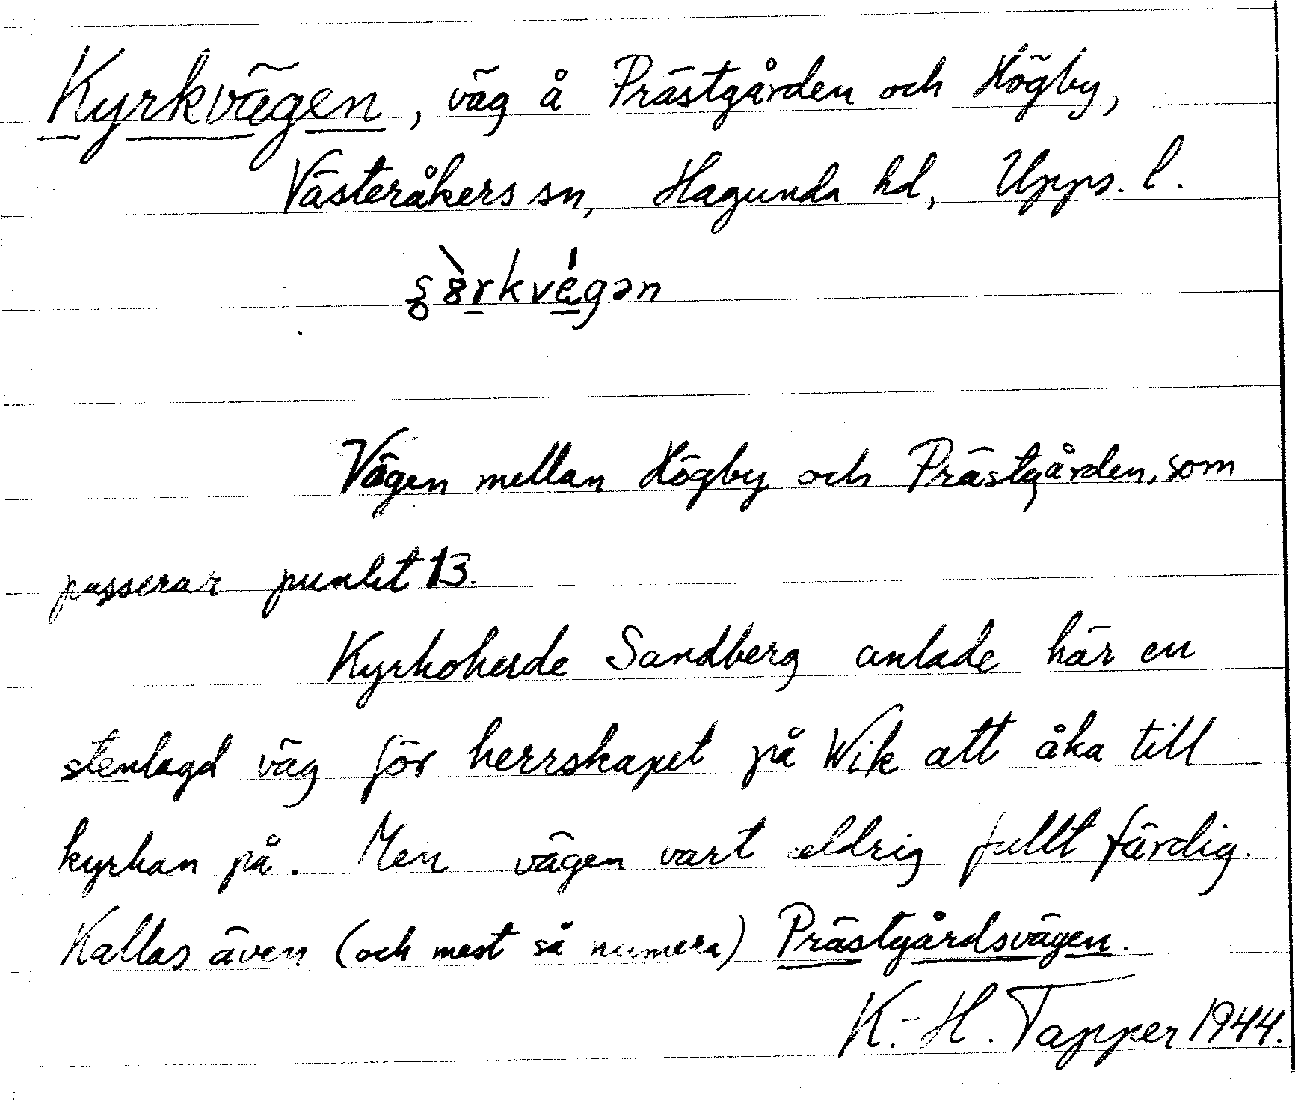 Kyrkvägen, väg å Prästgården och Högby,
Västeråkers sn, Hagunda hd, Upps. l.
Vägen mellan Högby och Prästgården, som
passerar punkt 13.
Kyrkoherde Sandberg anlade här en
stenlagd väg för herrskapet på Wik att åka till
kyrkan på. Men vägen vart aldrig fullt färdig.
Kallas även (och mest så numera) Prästgårdsvägen.
K.-H. Tapper 1944.